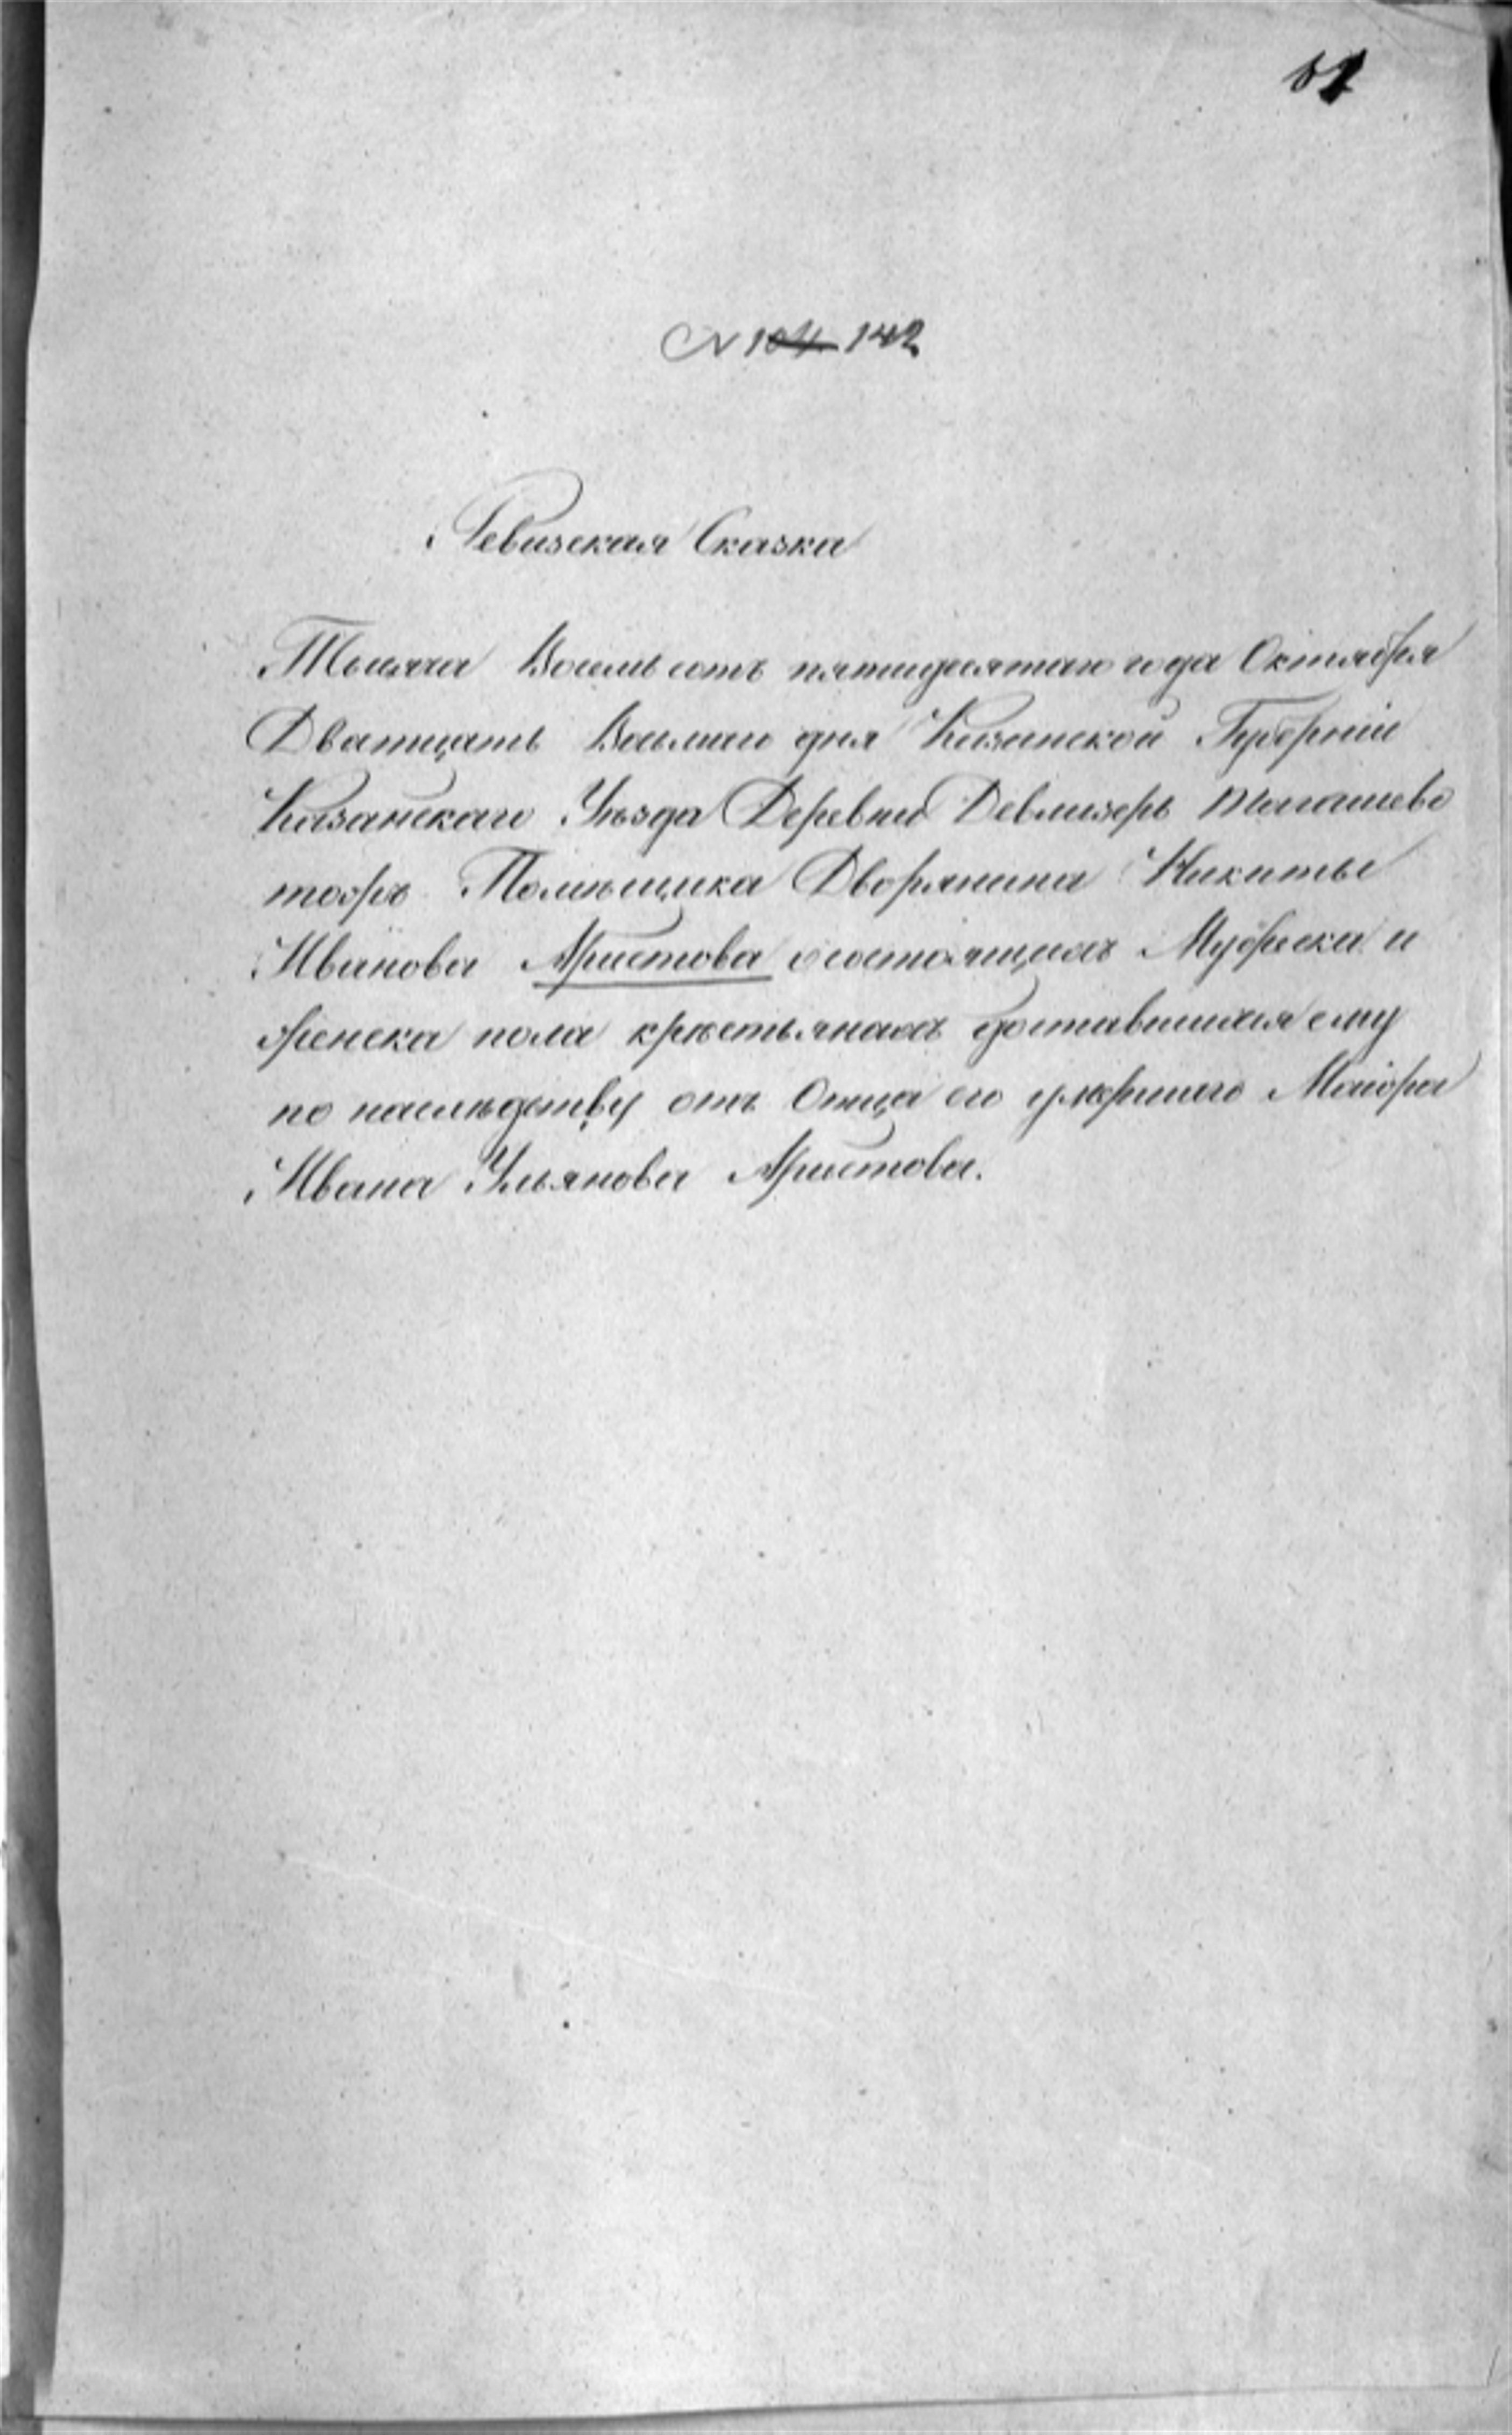 N 104 142
Ревизская Сказка
Тысяча Восемь сотъ пятидесятаго года Октября
Дватцать Восьмаго дня Казанской Губерніи
Казанскаго Уѣзда Деревни Девлизерь
тожъ Помѣщика Дворянина Никиты
Иванова Аристова о состоящихъ Мужеска и
женска пола крестьянахъ доставшихся ему
по наслѣдству отъ Отца его умершаго Маіора
Ивана Ульянова Аристова.